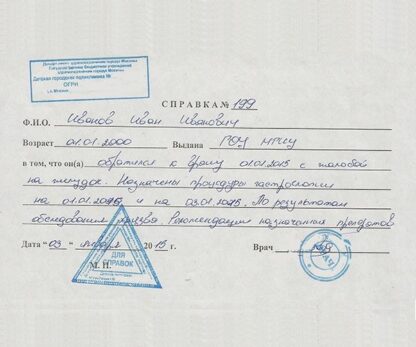 Департамент здравоохранения города Москвы
Государственное бюджетное учреждение
здравоохранения города Москвы
Детская городская поликлиника №
ОГРН
г. Москва
СПРАВКА № 199
Ф.И.О. Иванов Иван Иванович
Возраст 01.01.2000 Выдана РОУ МРСУ
в том, что он(а) обратился к врачу 01.01.2015 с жалобой
на желудок. Назначены процедуры гастроскопии
на 01.01.2015 и на 03.01.2015. По результатам
обследования язва. Рекомендации назначенная препаратов
Дата "03" января 2015 г. Врач
М.П.
ДЛЯ
СПРАВОК
ВРАЧ